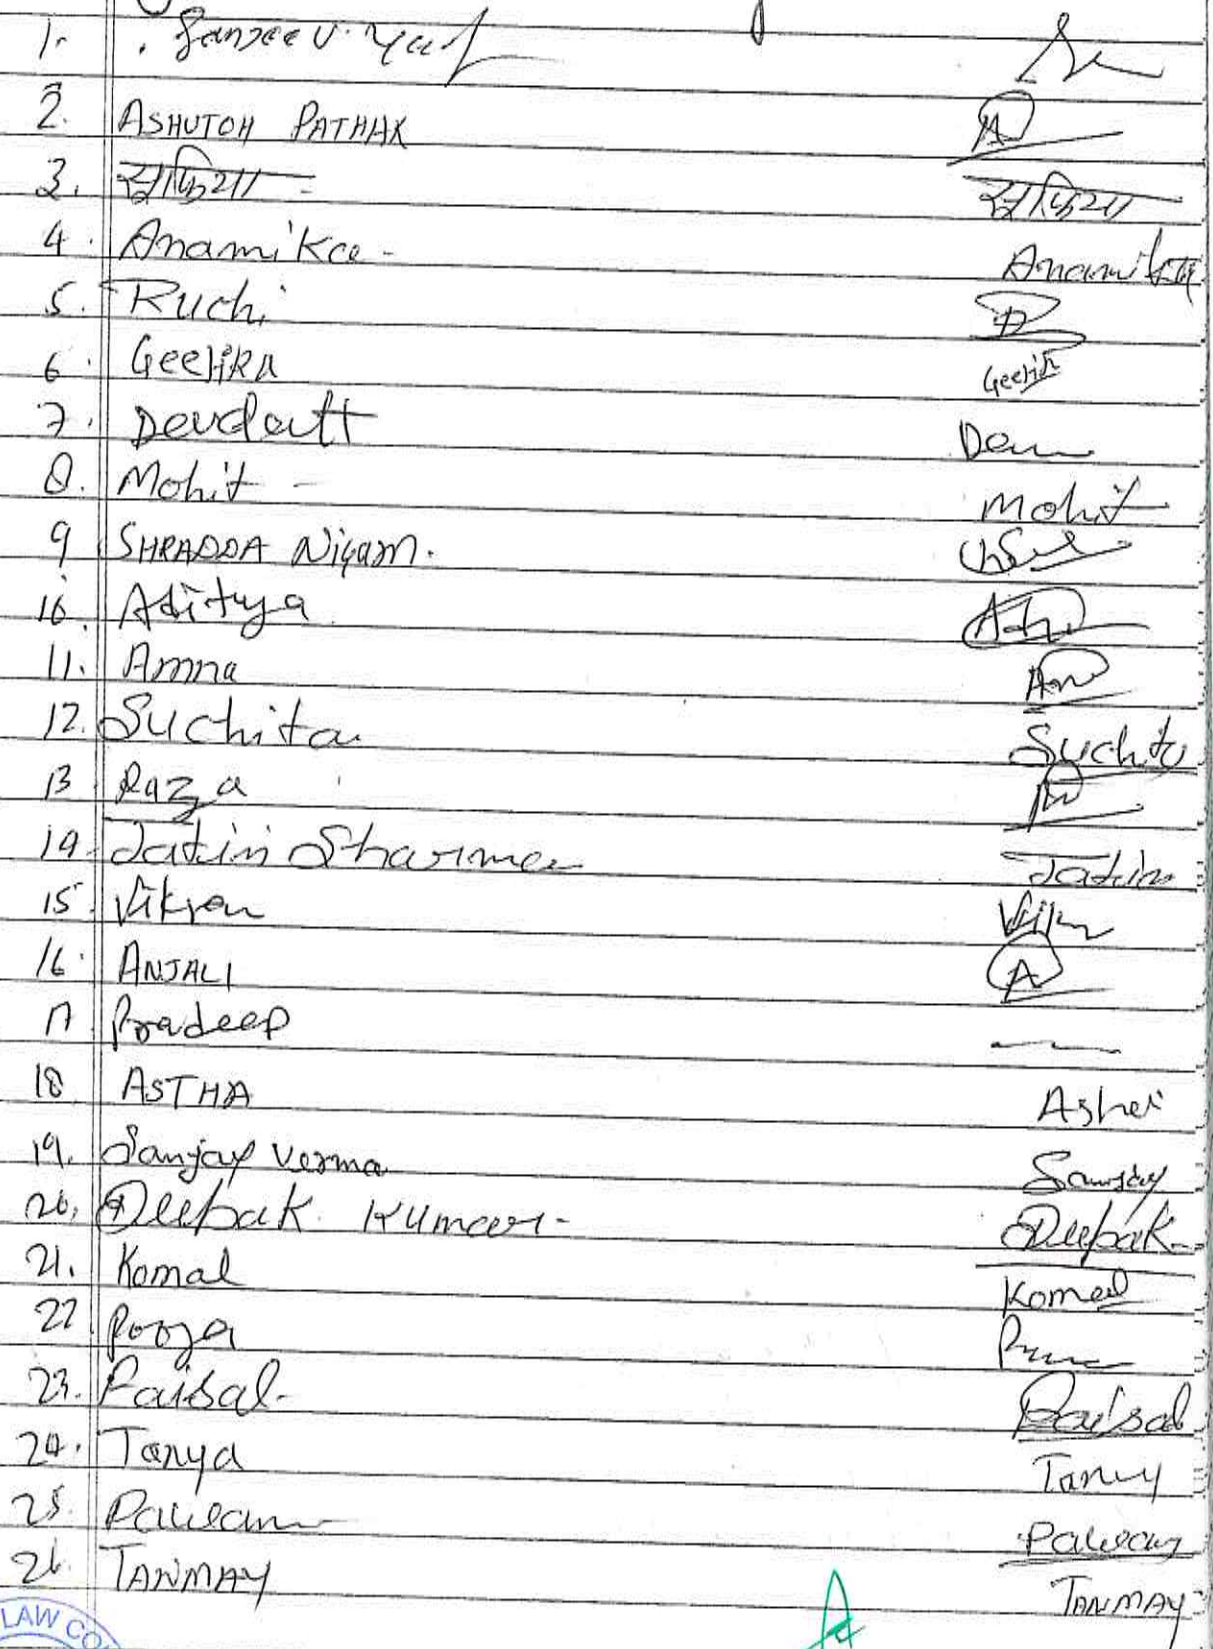 1. Sanjeev
2. ASHUTOH PATHAK A
3. साफिया साफिया
4. Anamika - Anamika
5. Ruchi
6. Geetika Geetik
7. Devdatt Dev
8. Mohit - Mohit
9 SHRADDA Nigam.
10. Aditya
11. Amna Am
12. Suchita Suchita
13 Raza
14. Jatin Sharma Jatin
15. Vikran
16. ANJALI A
17 Pradeep
18 ASTHA
19. Sanjay Verma Sanjay
20. Deepak Kumar - Deepak
21. Komal Komal
22 Pooja
23. Faisal - Faisal
24. Tanya Tany
25. Pawan Pawan
26. TANMAY TANMAY
LAW CO